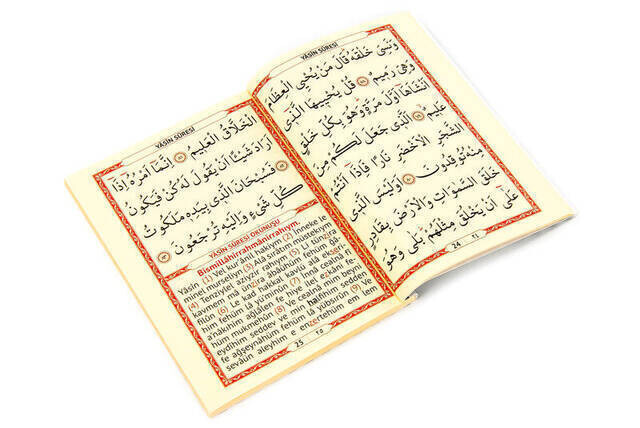 YÂSİN SÛRESİ
وَنَسِيَ خَلْقَهُ قَالَ مَنْ يُحْيِي الْعِظَامَ
وَهِيَ رَمِيمٌ ٧٨ قُلْ يُحْيِيهَا الَّذِي
اَنْشَاَهَا اَوَّلَ مَرَّةٍ وَهُوَ بِكُلِّ خَلْقٍ
عَلِيمٌ ٧٩ اَلَّذِي جَعَلَ لَكُمْ مِنَ
الشَّجَرِ الْاَخْضَرِ نَارًا فَاِذَا اَنْتُمْ
مِنْهُ تُوقِدُونَ ٨٠ اَوَلَيْسَ الَّذِي
خَلَقَ السَّمٰوَاتِ وَالْاَرْضَ بِقَادِرٍ
عَلٰى اَنْ يَخْلُقَ مِثْلَهُمْ بَلٰى وَهُوَ
24
YÂSİN SÛRESİ
الْخَلَّاقُ الْعَلِيمُ ٨١ اِنَّمَا اَمْرُهُ اِذَا
اَرَادَ شَيْئًا اَنْ يَقُولَ لَهُ كُنْ فَيَكُونُ
٨٢ فَسُبْحَانَ الَّذِي بِيَدِهِ مَلَكُوتُ
كُلِّ شَيْءٍ وَاِلَيْهِ تُرْجَعُونَ ٨٣
YÂSİN SÛRESİ OKUNUŞU
Bismillâhirrahmânirrahıym.
Yâsîn (1) Vel kur'ânil hakiym (2) İnneke le
minel murseliyn (3) Alâ sırâtım müstekıym
(4) Tenziylel aziyzir rahıym (5) Li tünzira
kavmem mâ ünzira âbâühüm fehüm ğâ
filûn (6) Le kad hakkal kavlü alâ ekseri
him fehüm lâ yü'minûn (7) İnnâ cealnâ fî
a'nâkıhim ağlâlen fe hiye ilel ezkâni fe
hüm mukmehûn (8) Ve cealnâ mim beyni
eydîhim seddev ve min halfihim sedden
fe ağşeynâhüm fehüm lâ yübsirûn (9) Ve
sevâün aleyhim e enzertehüm em lem
25